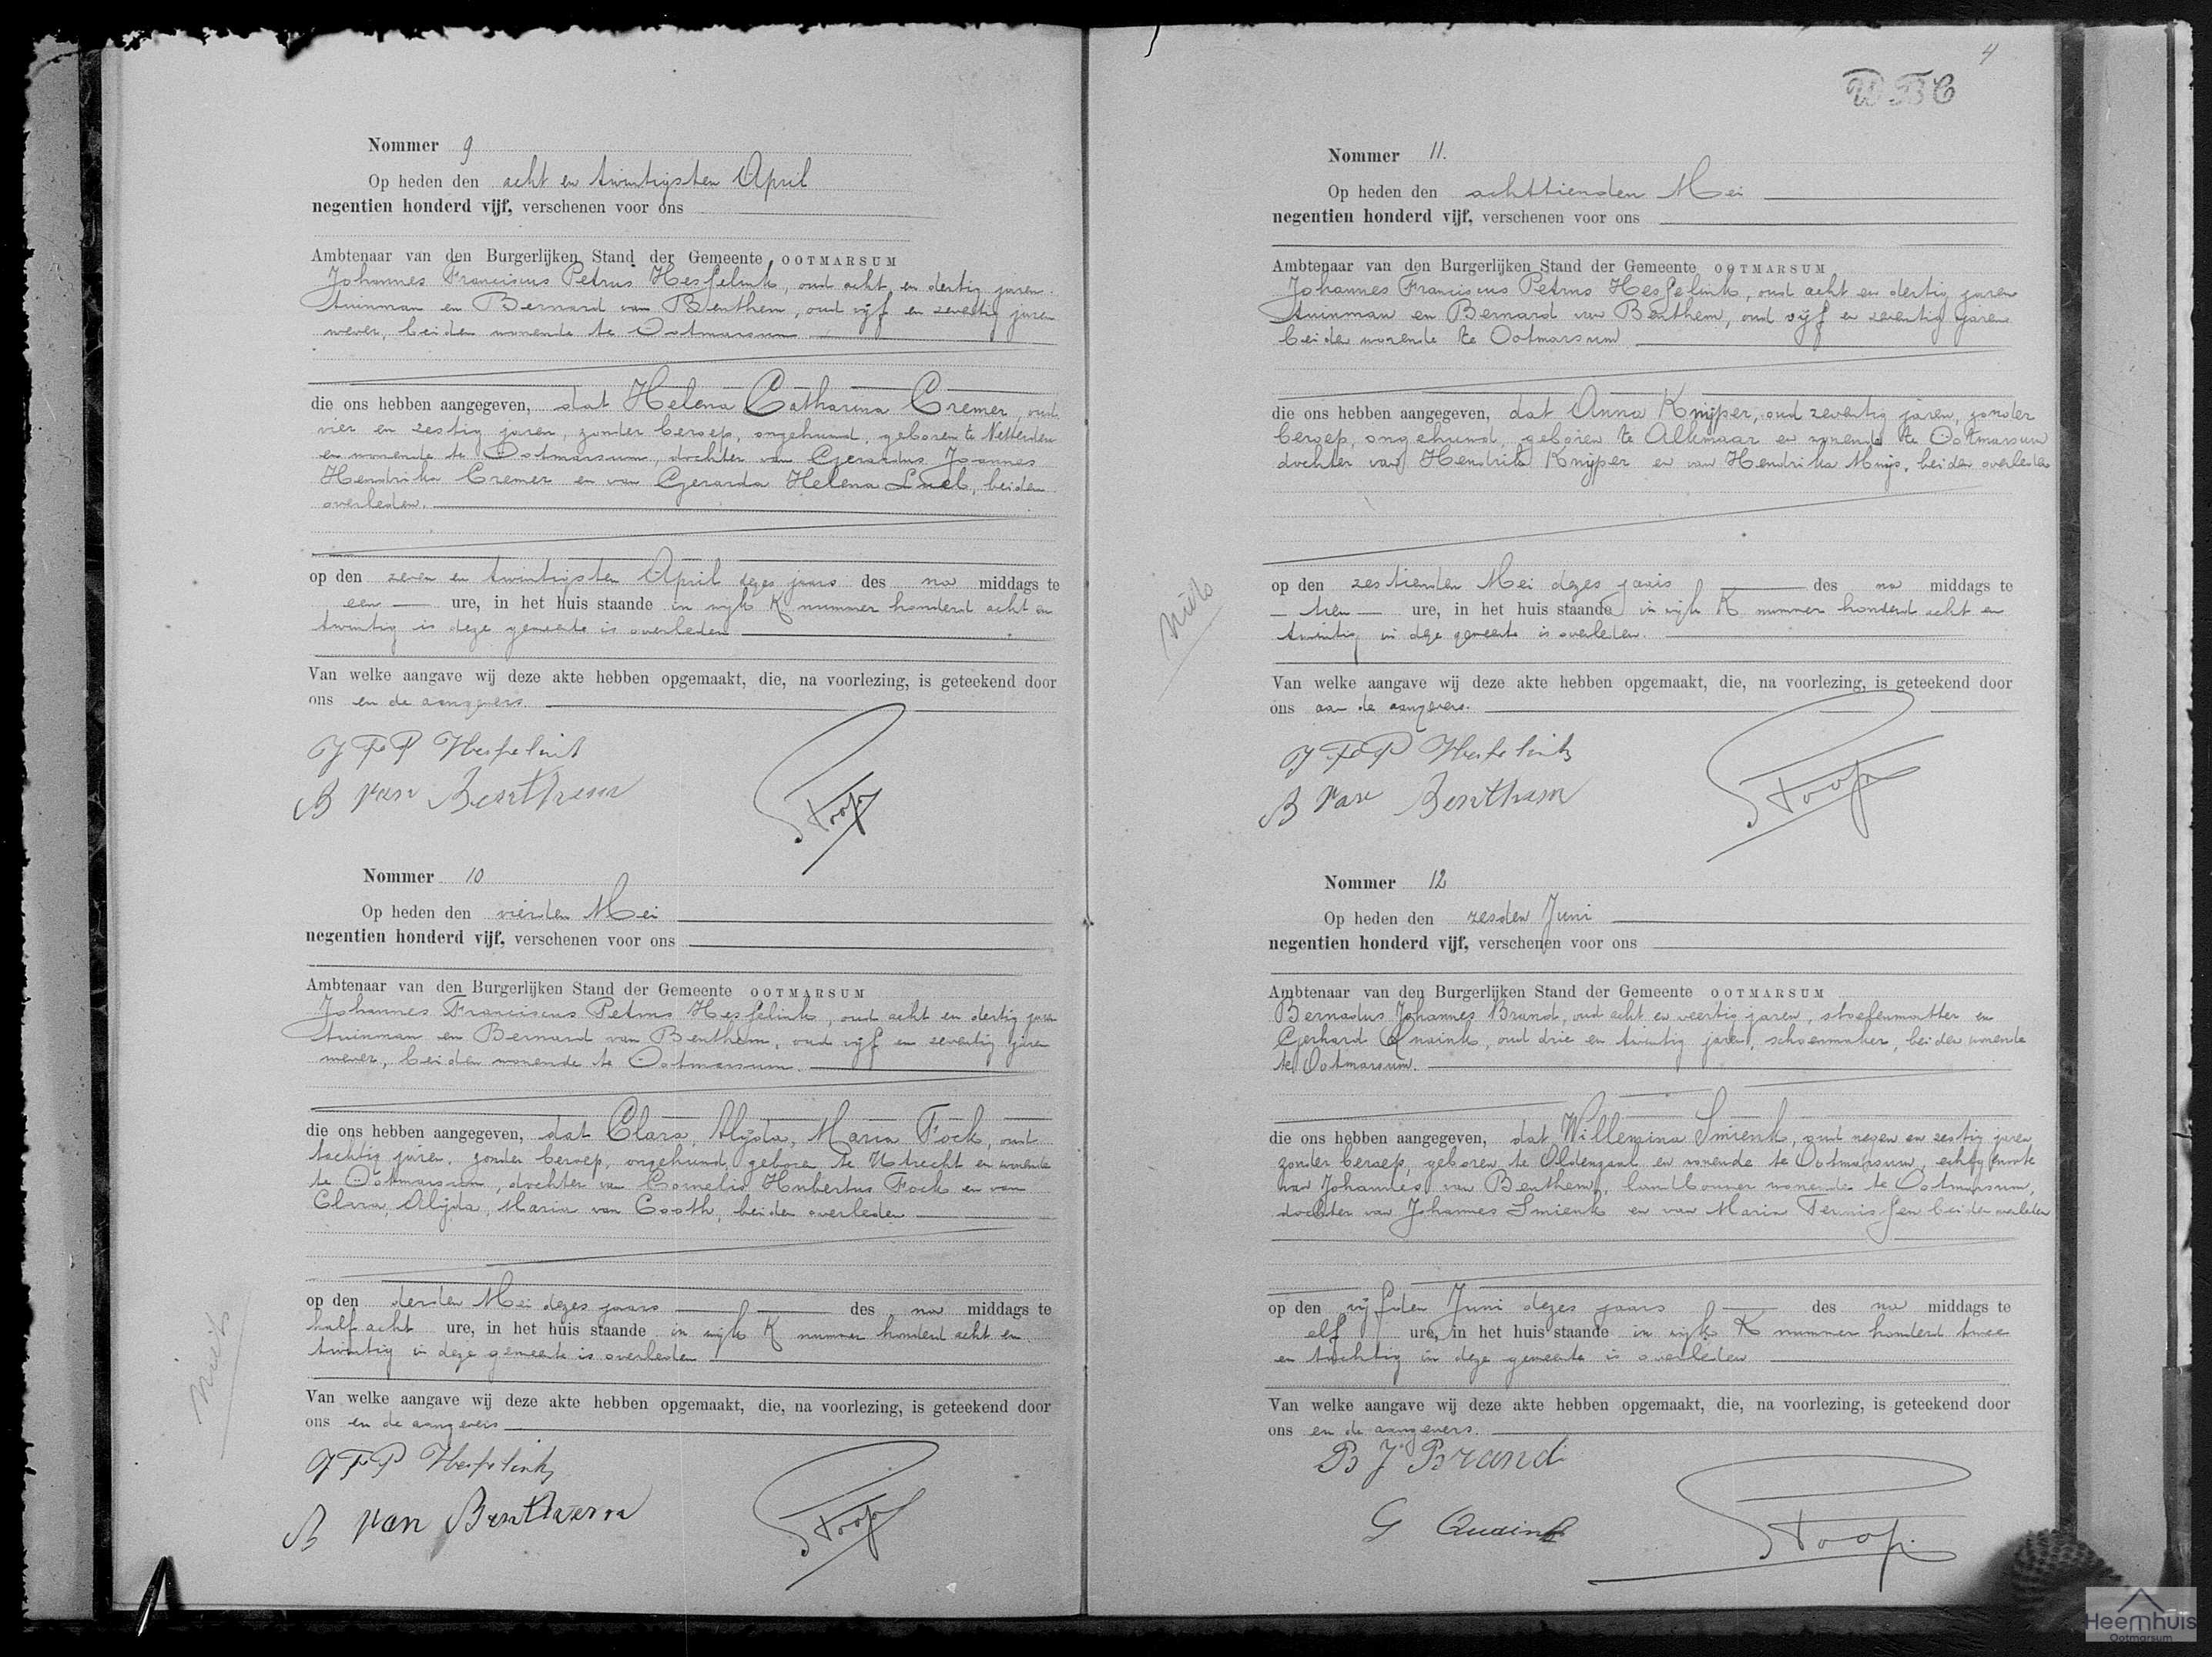 Nommer 9
Op heden den acht en twintigsten April
negentien honderd vijf, verschenen voor ons
Ambtenaar van den Burgerlijken Stand der Gemeente OOTMARSUM
Johannes Franciscus Petrus Hesselink, oud acht en dertig jaren
tuinman en Bernard van Benthem, oud vijf en zeventig jaren
wever, beiden wonende te Ootmarsum
die ons hebben aangegeven, dat Helena Catharina Cremer, oud
vier en zestig jaren, zonder beroep, ongehuwd, geboren te Netterden
en wonende te Ootmarsum, dochter van Gerardus Joannes
Hendrikus Cremer en van Gerarda Helena, beiden
overleden.
op den zeven en twintigsten April dezes jaars des na middags te
een ure, in het huis staande in wijk K nummer honderd acht en
twintig in deze gemeente is overleden
Van welke aangave wij deze akte hebben opgemaakt, die, na voorlezing, is geteekend door
ons en de aangevers.
J F P Hesselink
B van Benthem
Stoop
Nommer 10
Op heden den vierden Mei
negentien honderd vijf, verschenen voor ons
Ambtenaar van den Burgerlijken Stand der Gemeente OOTMARSUM
Johannes Franciscus Petrus Hesselink, oud acht en dertig jaren
tuinman en Bernard van Benthem, oud vijf en zeventig jaren
wever, beiden wonende te Ootmarsum.
die ons hebben aangegeven, dat Clara, Alijda, Maria Fock, oud
tachtig jaren, zonder beroep, ongehuwd, geboren te Utrecht en wonende
te Ootmarsum, dochter van Cornelis Hubertus Fock en van
Clara, Alijda, Maria van Cooth, beiden overleden
op den derden Mei dezes jaars des na middags te
half acht ure, in het huis staande in wijk K nummer honderd acht en
twintig in deze gemeente is overleden
Van welke aangave wij deze akte hebben opgemaakt, die, na voorlezing, is geteekend door
ons en de aangevers
J F P Hesselink
B van Benthem
Stoop
4
WBC
Nommer 11.
Op heden den achttienden Mei
negentien honderd vijf, verschenen voor ons
Ambtenaar van den Burgerlijken Stand der Gemeente OOTMARSUM
Johannes Franciscus Petrus Hesselink, oud acht en dertig jaren
tuinman en Bernard van Benthem, oud vijf en zeventig jaren
beiden wonende te Ootmarsum
die ons hebben aangegeven, dat Anna Knijper, oud zeventig jaren, zonder
beroep, ongehuwd, geboren te Alkmaar en wonende te Ootmarsum
dochter van Hendrik Knijper en van Hendrika Muijs, beiden overleden
op den zestienden Mei dezes jaars des na middags te
tien ure, in het huis staande in wijk K nummer honderd acht en
twintig in deze gemeente is overleden.
Van welke aangave wij deze akte hebben opgemaakt, die, na voorlezing, is geteekend door
ons de aangevers.
J F P Hesselink
B van Benthem
Stoop
Nommer 12
Op heden den zesden Juni
negentien honderd vijf, verschenen voor ons
Ambtenaar van den Burgerlijken Stand der Gemeente OOTMARSUM
Bernardus Johannes Brand, oud acht en veertig jaren, stoelenmatter en
Gerhard Quaink, oud drie en twintig jaren, schoenmaker, beiden wonende
te Ootmarsum.
die ons hebben aangegeven, dat Willemina Smienk, oud negen en zestig jaren
zonder beroep, geboren te Oldenzaal en wonende te Ootmarsum, echtgenoote
van Johannes van Benthem, landbouwer wonende te Ootmarsum,
dochter van Johannes Smienk en van Maria Teunissen beiden overleden
op den vijfden Juni dezes jaars des na middags te
elf ure, in het huis staande in wijk K nummer honderd twee
en tachtig in deze gemeente is overleden
Van welke aangave wij deze akte hebben opgemaakt, die, na voorlezing, is geteekend door
ons en de aangevers.
B J Brand
G Quaink
Stoop
Heemhuis
Ootmarsum